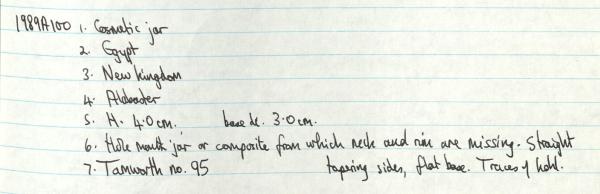 1989A100 1. Cosmetic jar
2. Egypt
3. New Kingdom
4. Alabaster
5. H. 4.0cm. base de. 3.0cm.
6. Hole mouth jar or composite from which neck and rim are missing. Straight
tapering sides, flat base. Traces of kohl.
7. Tamworth no. 95